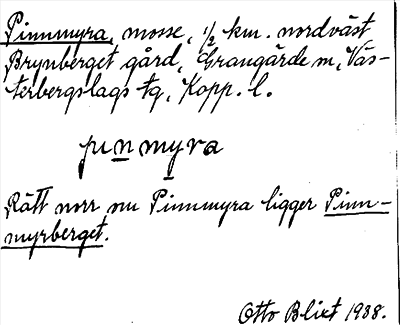 Pinnmyra, mosse, ½ km. nordväst
Brynberget gård, Grangärde m, Väs-
terbergslags tg, Kopp. l.
pinmyra
Rätt norr om Pinnmyra ligger Pinn-
myrberget.
Otto Blixt 1938.